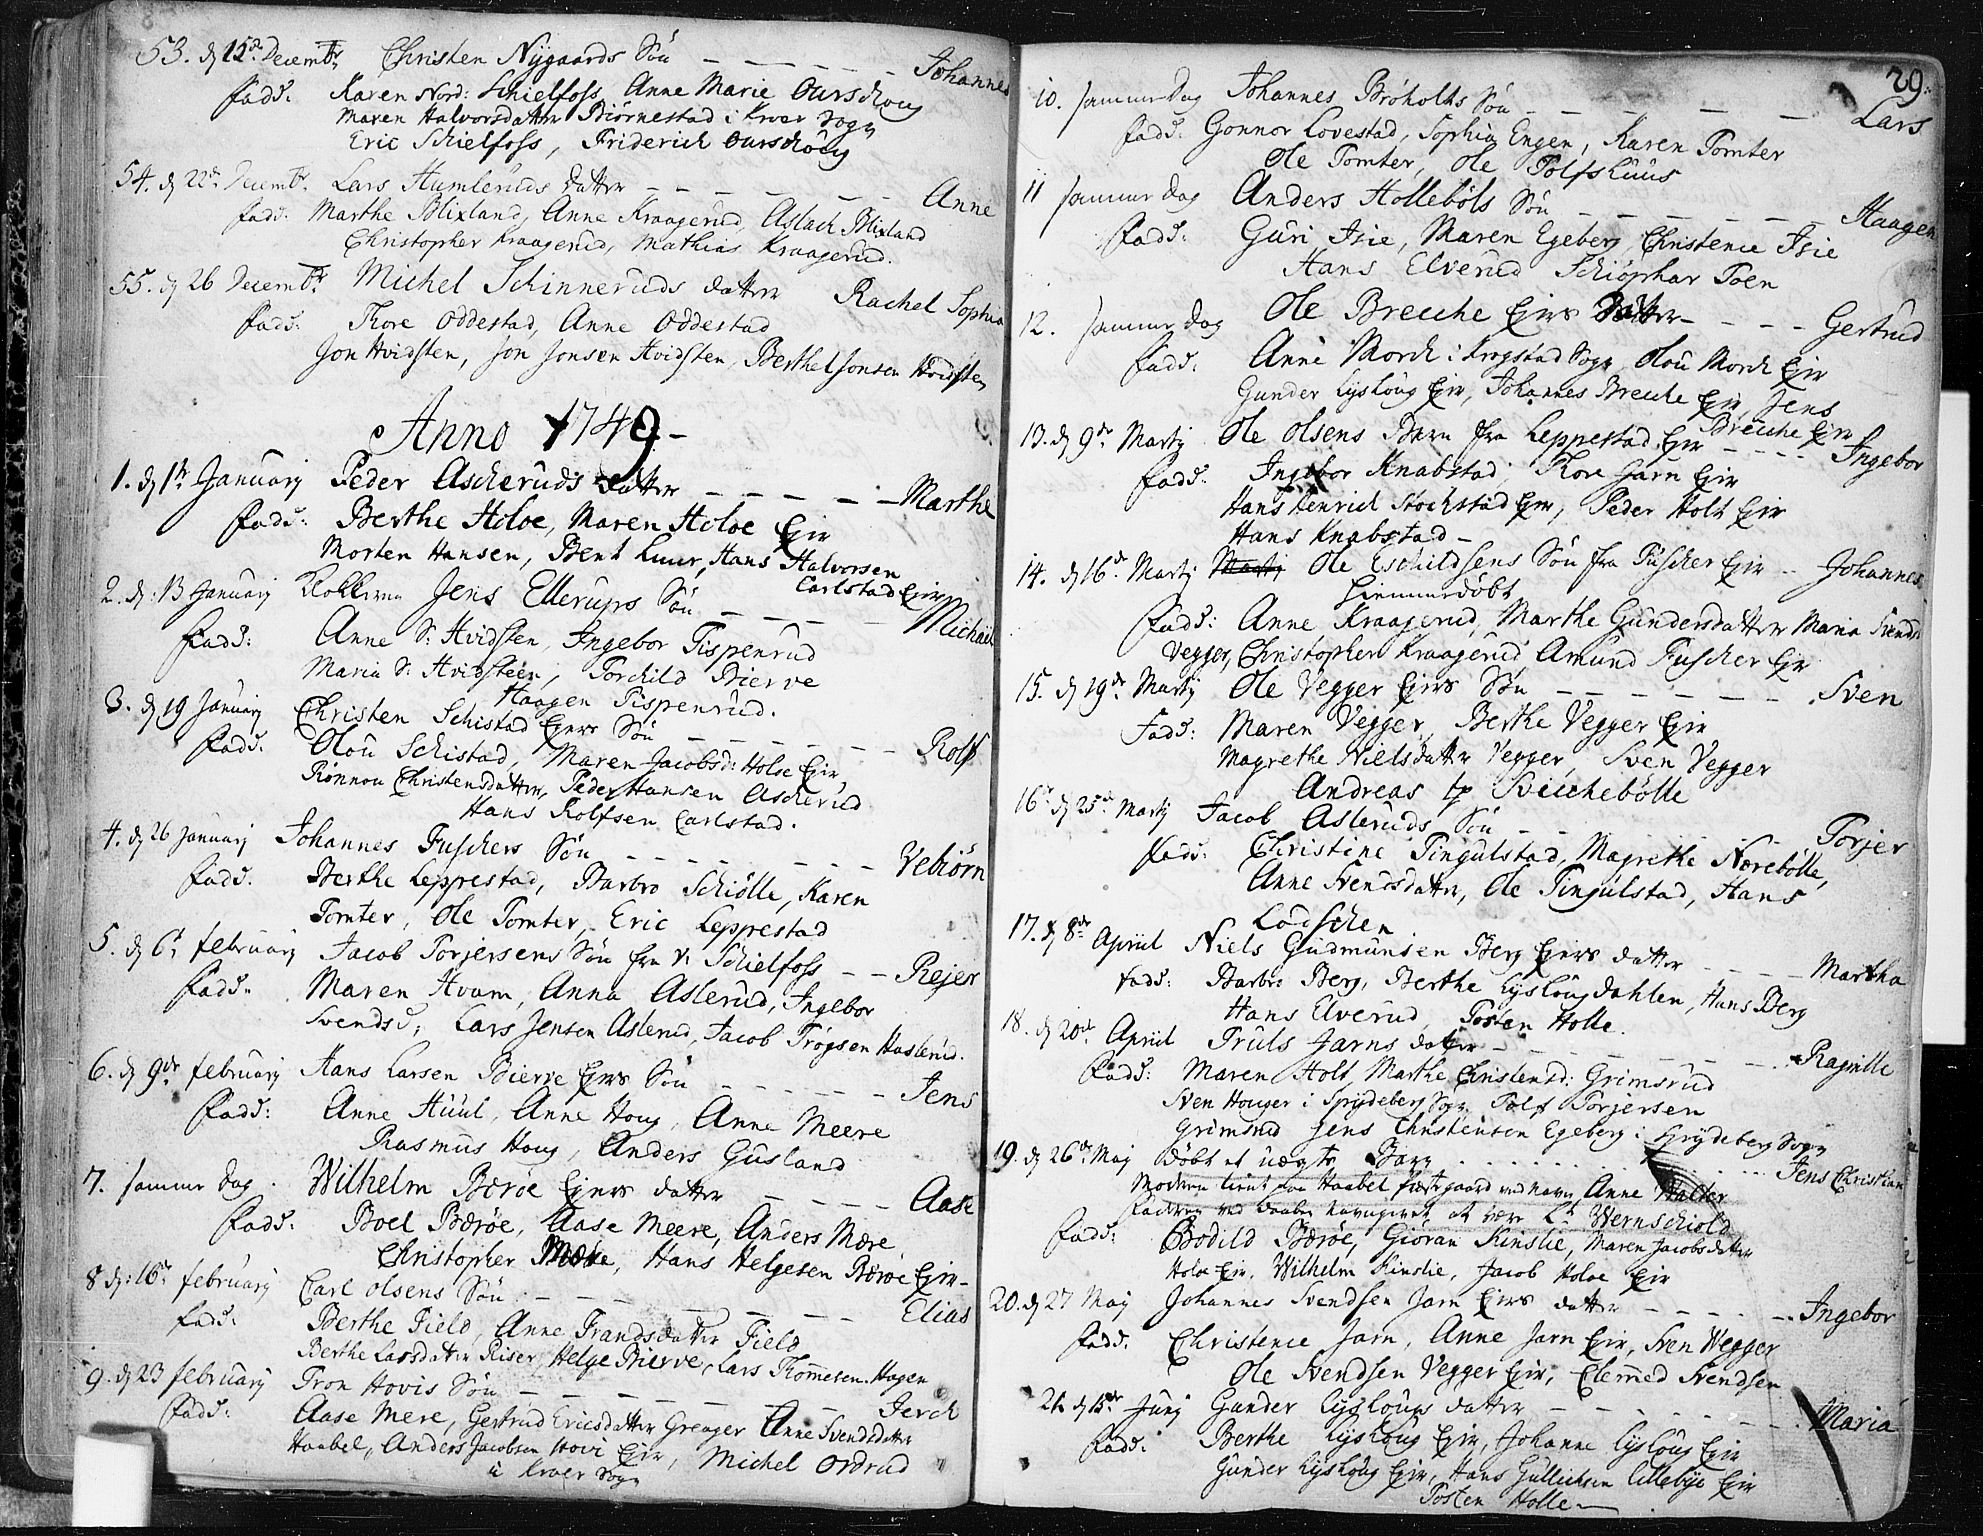 53. d 15de Decembr Christen Nygaards Søn - - - - - Johannes
Fadd: Karen Nord: Schielfoss, Anne Marie Ourschoug
Maren Halvorsdatter Biørnestad i Kroer Sogn
Eric Schielfoss, Friderich Ourschoug
54. d 22de Decembr. Lars Humleruds datter - - - - - - Anne
Fadd: Marthe Blixland, Anne Kraagerud, Aslach Blixland
Christopher Kraagerud, Mathias Kraagerud.
55. d 26 Decembr Michel Schinneruds datter Rachel Sophia
Fadd: Thore Oddestad, Anne Oddestad
Jon Hvidsten, Jon Jonsen Hvidsten, Berthel Jonsen Hvidsten
Anno 1749-
1. d 1te January Peder Ascheruds datter - - - - - Marthe
Fadd: Berthe Holoe, Maren Holoe Eier
Morten Hansen, Bent Huur, Hans Halvorsen
Carlstad Eier
2. d: 13 January Klokkeren Jens Ellerups Søn - - - - - Michael
Fadd: Anne S: Hvidsten, Ingebor Tispenrud
Maria S: Hvidsteen, Torchild Bierve
Haagen Tispenrud.
3. d 19 January Christen Schistad Eiers Søn - - - - - - Rolf
Fadd: Olou Schistad, Maren Jacobsd: Holoe Eier,
Rønnou Christensdatter, Peder Hansen Ascherud
Hans Rolfsen Carlstad.
4. d 26 January Johannes Fuschers Søn - - - - - - - Vebiørn
Fadd: Berthe Leppestad, Barbro Schiølle, Karen
Tomter, Ole Tomter, Eric Leppestad
5. d 6t February Jacob Torjersens Søn fra N: Schielfoss - - Rejer
Fadd: Maren Hvam, Anna Aslerud, Ingebor
Svendsd:, Lars Jensen Aslerud, Jacob Trøgsen Haslerud.
6. d 9de February Hans Larsen Bierve Eiers Søn - - - - - - Jens
Fadd: Anne Huul, Anne Houg, Anne Meere
Rasmus Houg, Anders Gusland
7. samme Dag. Wilhelm Bærøe Eiers datter - - - - - Aase
Fadd: Boel Bærøe, Aase Meere, Anders Mære,
Christopher Mære, Hans Helgesen Bærøe Eier-
8 d: 16de February Carl Olsens Søn - - - - - - - Elias
Fadd: Berthe Field, Anne Frandsdatter Field
Berthe Larsdatter Riser, Helge Bierve, Lars Thomesen Hagen
9. d 23 February Tron Hovis Søn - - - - - - - Jerch
Fadd: Aase Mere, Gertrud Ericsdatter Grenager Anne Svendsdatter
Haabel, Anders Jacobsen Hovi Eier, Michel Ordrud
i Kroer Sogn
29.
10. samme Dag Johannes Brøholts Søn - - - - - - Lars
Fadd: Gonnor Lovestad, Sophia Engen, Karen Tomter
Ole Tomter, Ole Tolfshuus
11 samme dag Anders Hollebøls Søn - - - - - - Haagen
Fadd: Guri Isie, Maren Egeberg, Christence Isie
Hans Elverud Schiophar Toen
12. samme Dag Ole Breche Eiers Datter - - - - Gertrud
Fadd: Anne Morch i Krogstad Sogn, Olou Morch Eier
Gunder Lyshoug Eier, Johannes Breche Eier, Jens
Breche Eier
13. d 9de Martij Ole Olsens Barn fra Leppestad Eier - - - - Ingebor
Fadd: Ingebor Knabstad, Thore Jarn Eier
Hans Henrich Stochstad Eier, Peder Holt Eier
Hans Knabstad -
14. d 16de Martij Ole Eschildsens Søn fra Fuscher Eier - - Johannes
Hiemmedøbt
Fadd: Anne Kraagerud, Marthe Gundersdatter Maria Svendsd
Vegger, Christopher Kraagerud Amund Fuscher Eier
15. d 19de Martij Ole Vegger Eiers Søn - - - - - - - Sven
Fadd: Maren Vegger, Berthe Vegger Eier
Magrethe Nielsdatter Vegger, Sven Vegger
Andreas Svichebølle
16. d 25de Martij Jacob Asleruds Søn - - - - Torjer
Fadd: Christine Tingulstad, Magrethe Nærebølle,
Anne Svendsdatter, Ole Tingulstad, Hans
Lodschen
17. d 8de Apriil Niels Gudmunsen Berg Eiers datter - - - - - Martha
Fadd: Barbro Berg, Berthe Lyshoug Dahlen, Hans Berg
Hans Elverud, Tosten Holle.
18. d 20de Apriil Truls Jarns datter - - - - - - - Ragnille
Fadd: Maren Holt, Marthe Christensd: Grimsrud
Sven Houger i Spydeberg Sogn, Tolf Torjersen
Grimsrud Jens Christensen Egeberg i Spydeberg Sogn
19. d 26de Maj døbt et uægte Barn . . . . . . . . . . . . Jens Christian
Moderen tient paa Haabel Præstgaard ved navn Anne Walter
Faderen ved daaben navngivet at være Lt. Wernschiold
Fadd: Bodild Bærøe, Giøran Kinslie, Maren Jacobsdatter
Holoe Eier, Wilhelm Kinslie, Jacob Holoe Eier
20. d 27 Maj Johannes Svendsen Jarn Eiers datter - - - - - - Ingebor
Fadd: Christence Jarn, Anne Jarn Eier, Sven Wegger
Ole Svendsen Vegger Eier, Clemed Svendsen
21. d 15de Junj Gunder Lyshougs datter - - - - - - - - Maria
Fadd: Berthe Lyshoug Eier, Johanne Lyshoug Eier
Gunder Lyshoug Eier, Hans Gullichsen Lillebye Eier
Tosten Holle -